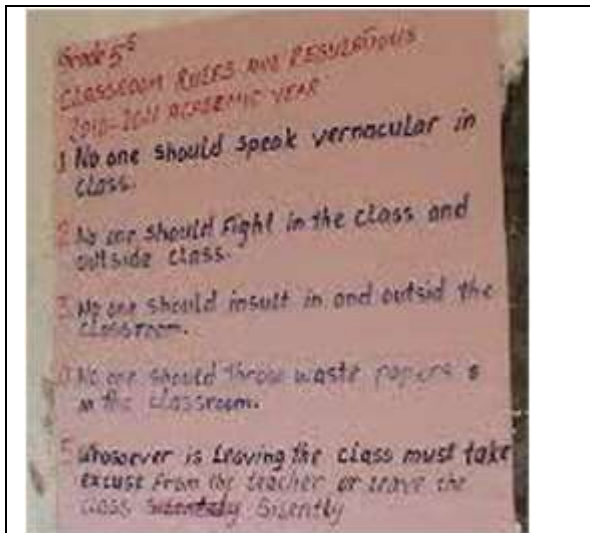 Grade 5s
CLASSROOM RULES AND REGULATIONS
ACADEMIC YEAR
1 No one should speak vernacular in
class.
2 No one should Fight in the class and
outside class.
3 No one should insult in and outsid the
classroom.
No one should throw waste papers
in the classroom.
5 Whosoever is leaving the class must take
excuse from the teacher or leave the
class Silently